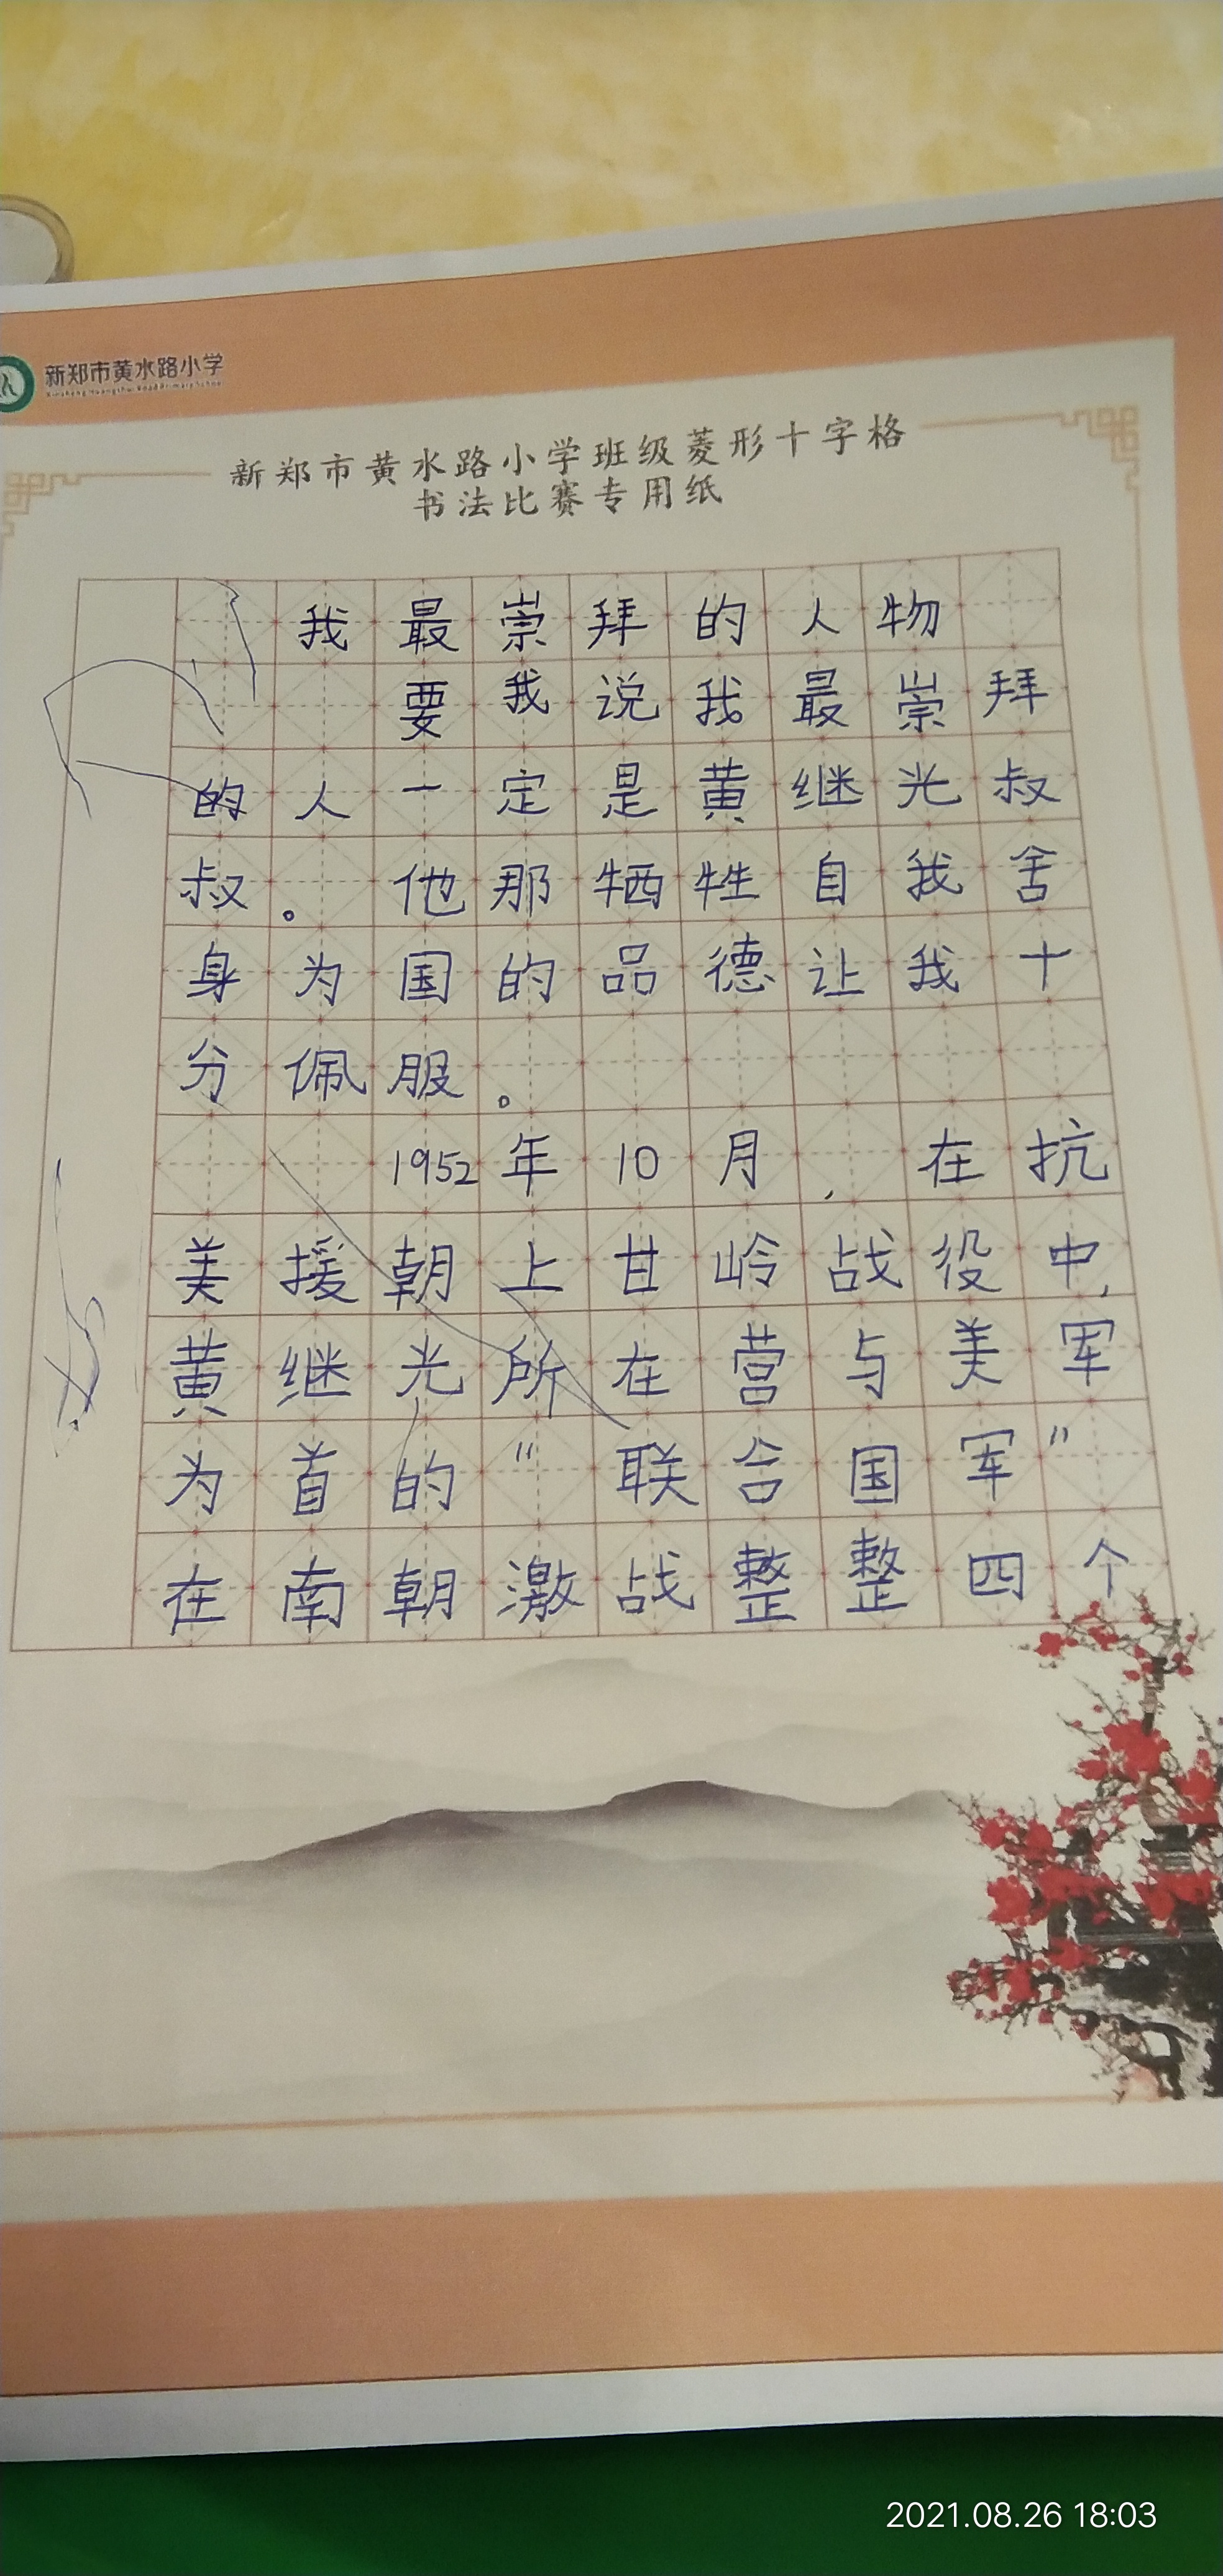 新郑市黄水路小学
新郑市黄水路小学班级菱形十字格
书法比赛专用纸
我最崇拜的人物
要我说我最崇拜
的人一定是黄继光叔
叔。他那牺牲自我舍
身为国的品德让我十
分佩服。
1952年10月,在抗
美援朝上甘岭战役中,
黄继光所在营与美军
为首的“联合国军”
在南朝激战整整四个
2021.08.26 18:03